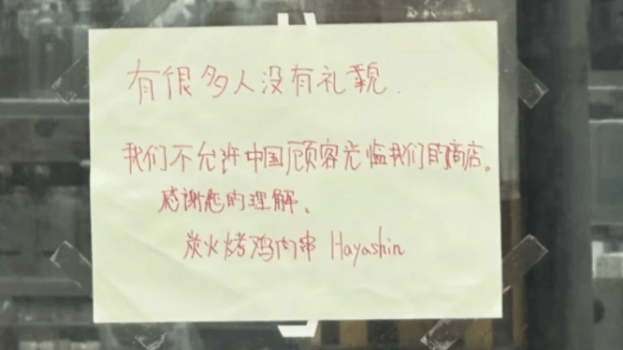 有很多人没有礼貌.
我们不允许中国顾客光临我们的商店。
感谢您的理解、
炭火烤鸡肉串 Hayashin